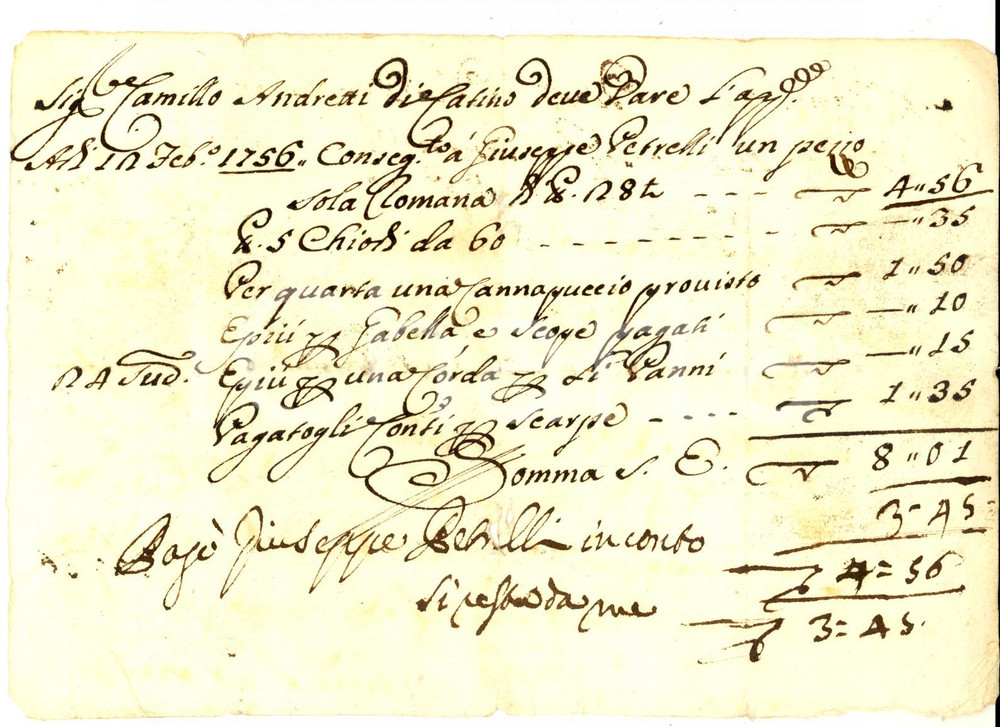 Sig.re Camillo Andretti di Catino deve Dare l'app.
Adi 12 Feb.o 1756 ,, Conseg.to á Giuseppe Petrelli un pezzo
sola Romana 4 ,, 56
5 Chiodi da 60 - - - - - - - - — ,, 35
Per quarta una Cannapuccio provisto 1 ,, 50
E più Gabella e scope pagati — ,, 10
24 Sud. E più una Corda Li Panni — ,, 15
Pagatogli Conti scarpe - - - - 1 ,, 35
Somma S. E. 8 ,, 01
3 - 45
Pagò Giuseppe Petrelli in conto 4 = 56
Si resta da me 3 = 45